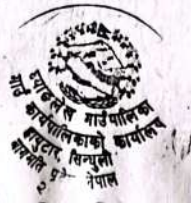 घ्याङलेख गाउँपालिका
गाउँ कार्यपालिकाको कार्यालय
हायुटार, सिन्धुली
नेपाल